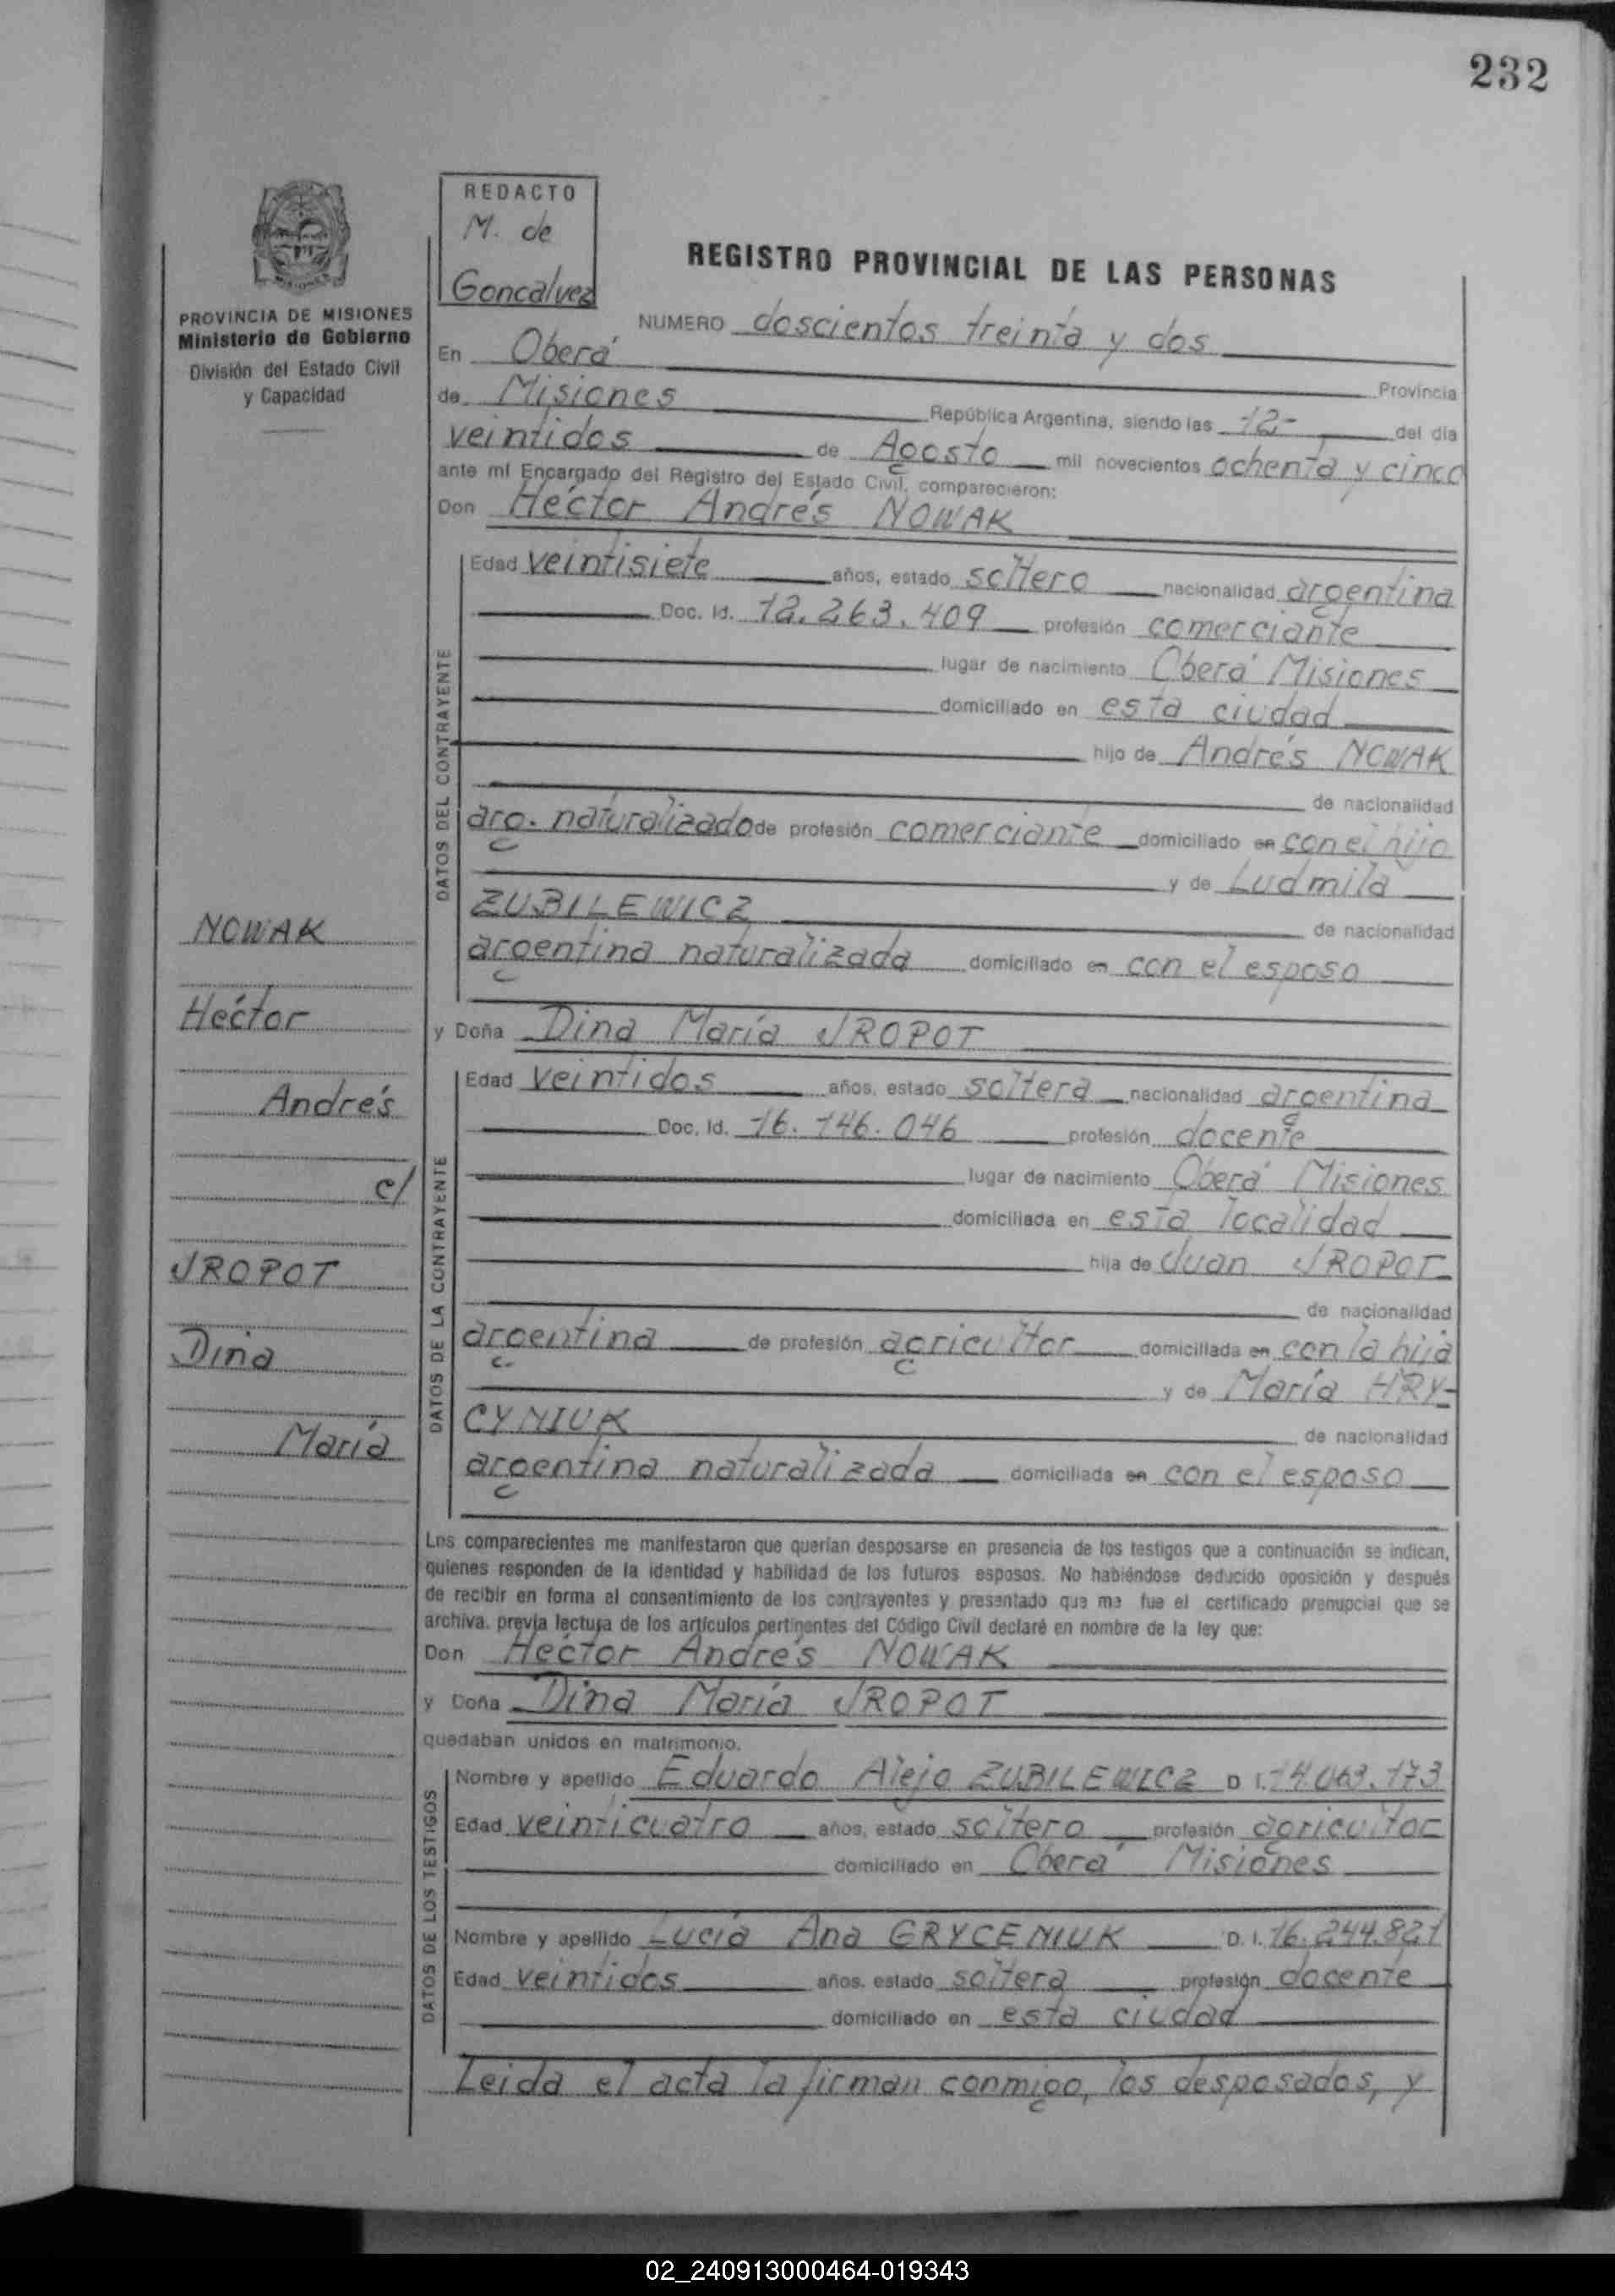 232
REDACTO
M. de
Goncalvez
REGISTRO PROVINCIAL DE LAS PERSONAS
PROVINCIA DE MISIONES
Ministerio de Gobierno
División del Estado Civil
y Capacidad
NUMERO doscientos treinta y dos
En Oberá Provincia
de Misiones República Argentina, siendo las 12- del día
veintidos de Agosto mil novecientos ochenta y cinco
ante mí Encargado del Registro del Estado Civil, comparecieron:
Don Héctor Andrés NOWAK
DATOS DEL CONTRAYENTE
Edad veintisiete años, estado soltero nacionalidad argentina
Doc. Id. 12.263.409 profesión comerciante
lugar de nacimiento Oberá Misiones
domiciliado en esta ciudad
hijo de Andrés NOWAK
de nacionalidad
arg. naturalizado de profesión comerciante domiciliado en con el hijo
y de Ludmila
ZUBILEWICZ de nacionalidad
argentina naturalizada domiciliado en con el esposo
y Doña Dina María JROPOT
DATOS DE LA CONTRAYENTE
Edad veintidos años, estado soltera nacionalidad argentina
Doc. Id. 16.146.046 profesión docente
lugar de nacimiento Oberá Misiones
domiciliada en esta localidad
hija de Juan JROPOT
de nacionalidad
argentina de profesión agricultor domiciliada en con la hija
y de María HRY-
CYNIUK de nacionalidad
argentina naturalizada domiciliada en con el esposo
NOWAK
Héctor
Andrés
c/
JROPOT
Dina
María
Los comparecientes me manifestaron que querían desposarse en presencia de los testigos que a continuación se indican,
quienes responden de la identidad y habilidad de los futuros esposos. No habiéndose deducido oposición y después
de recibir en forma el consentimiento de los contrayentes y presentado que me fue el certificado prenupcial que se
archiva. previa lectura de los artículos pertinentes del Código Civil declaré en nombre de la ley que:
Don Héctor Andrés NOWAK
y Doña Dina María JROPOT
quedaban unidos en matrimonio.
DATOS DE LOS TESTIGOS
Nombre y apellido Eduardo Alejo ZUBILEWICZ D I. 14.063.173
Edad veinticuatro años, estado soltero profesión agricultor
domiciliado en Oberá Misiones
Nombre y apellido Lucía Ana GRYCENIUK D. I. 16.244.821
Edad veintidos años. estado soltera profesión docente
domiciliado en esta ciudad
Leida el acta la firman conmigo, los desposados, y
02_240913000464-019343